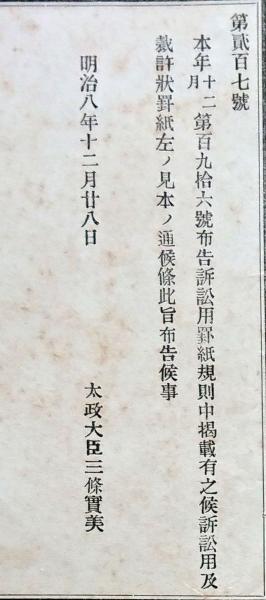 第貳百七號
本年十二月第百九拾六號布吿訴訟用罫紙規則中揭載有之候訴訟用及
裁許狀罫紙左ノ見本ノ通候條此旨布吿候事
明治八年十二月廿八日
太政大臣三條實美